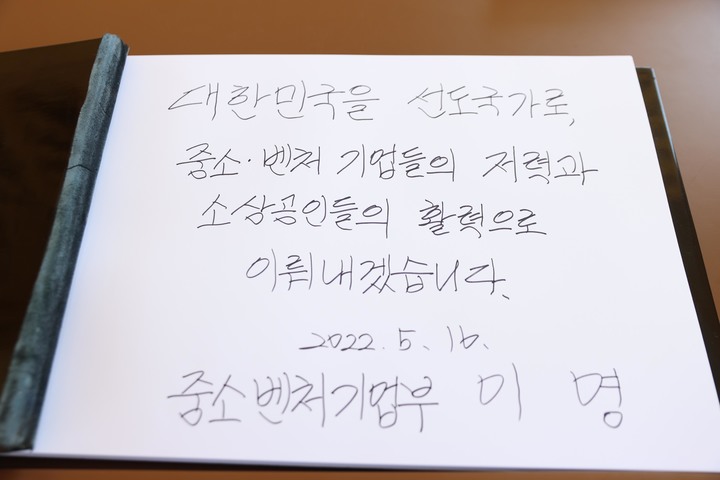 대한민국을 선도국가로,
중소·벤처 기업들의 저력과
소상공인들의 활력으로
이뤄내겠습니다.
2022. 5. 16.
중소벤처기업부 이 영